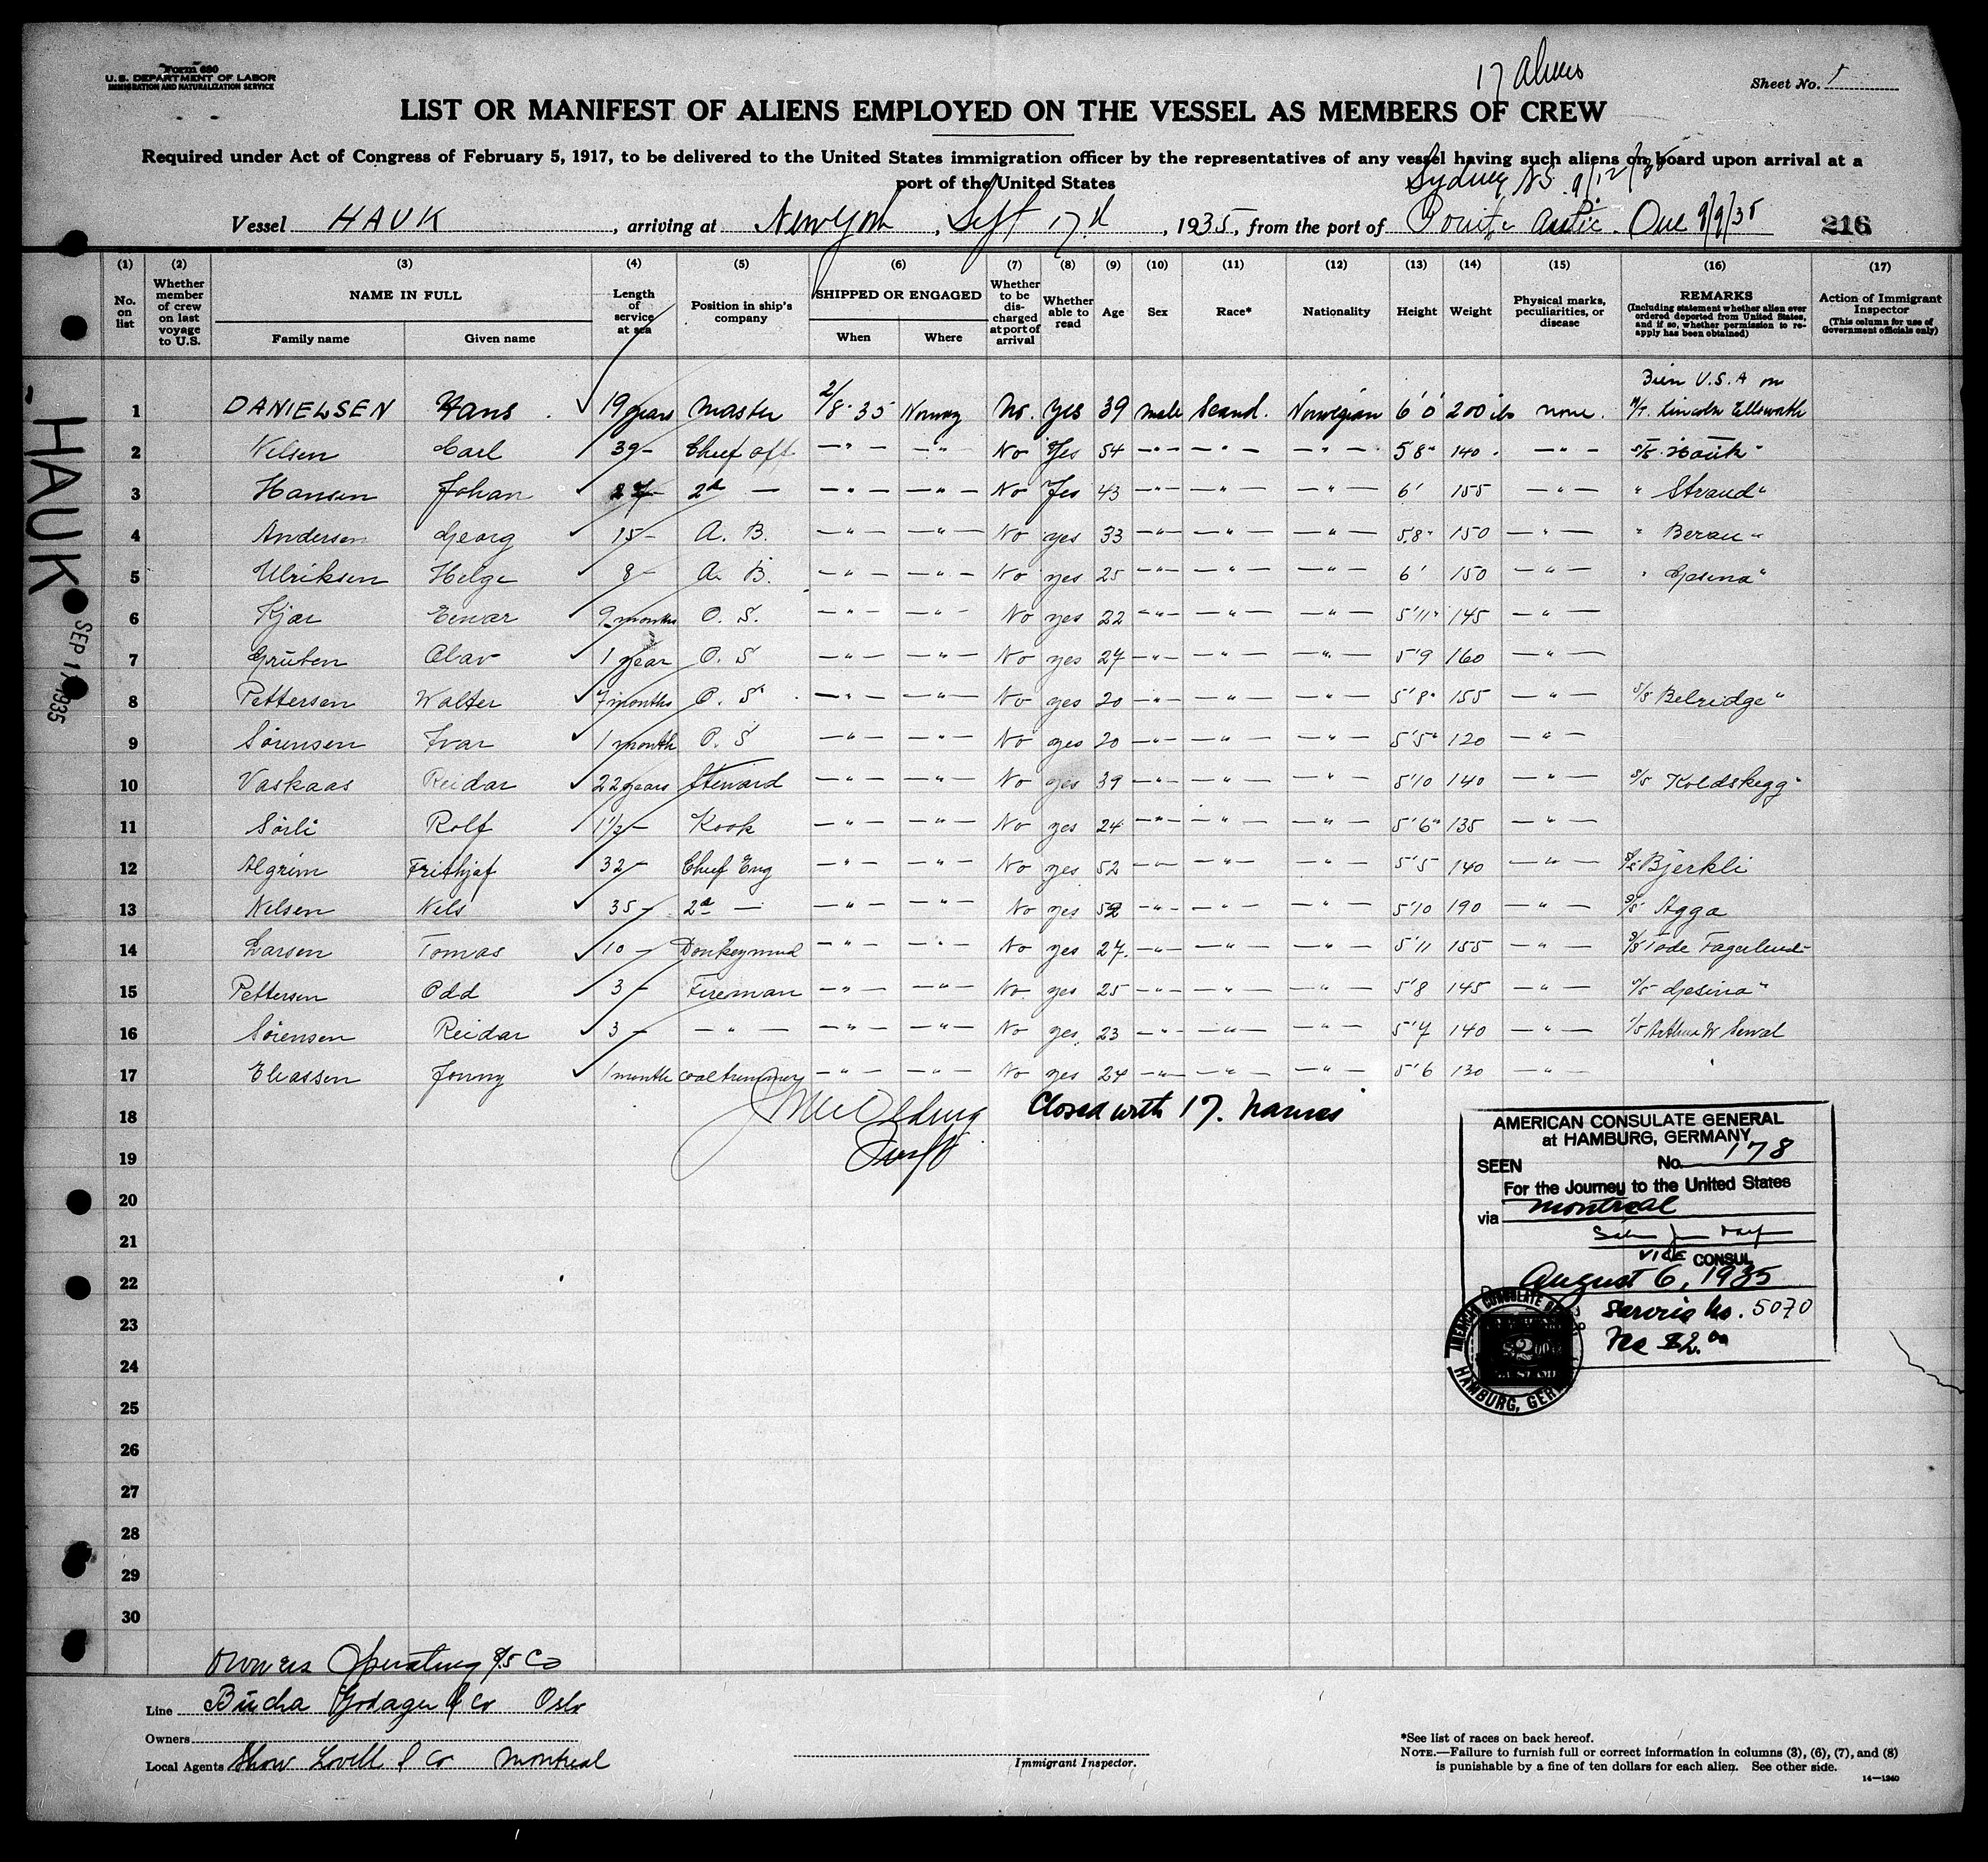 Form 680
U.S. DEPARTMENT OF LABOR
IMMIGRATION AND NATURALIZATION SERVICE
17 aliens
Sheet No. 1
LIST OR MANIFEST OF ALIENS EMPLOYED ON THE VESSEL AS MEMBERS OF CREW
Required under Act of Congress of February 5, 1917, to be delivered to the United States immigration officer by the representatives of any vessel having such aliens on board upon arrival at a
port of the United States
Sydney NS. 9/12/35
Vessel HAUK, arriving at New York, Sept 17th, 1935, from the port of 9/9/35
216
(1) (2) (3) (4) (5) (6) (7) (8) (9) (10) (11) (12) (13) (14) (15) (16) (17)
No. on list
Whether member of crew on last voyage to U.S.
NAME IN FULL
Family name Given name
Length of service at sea
Position in ship's company
SHIPPED OR ENGAGED
When Where
Whether to be discharged at port of arrival
Whether able to read
Age
Sex
Race*
Nationality
Height
Weight
Physical marks, peculiarities, or disease
REMARKS
(Including statement whether alien ever ordered deported from United States, and if so, whether permission to reapply has been obtained)
Action of Immigrant Inspector
(This column for use of Government officials only)
Bien U.S.A on
1 DANIELSEN Hans. ✓ 19 years Master 2/8-35 Norway No. yes 39 male Scand. Norwegian 6'0 200 lbs none. M/T. Lincoln Ellsworth
2 Nilsen Carl 39 - Chief off — " — — " — No Yes 54 — " — — " — — " — 5 8" 140 — " — S/S Hauk"
3 Hansen Johan ✓ 27 - 2d — — " — — " — No Yes 43 — " — — " — — " — 6' 155 — " — " Strand"
4 Andersen Georg ✓ 15 - A. B. — " — — " — No yes 33 — " — — " — — " — 5.8" 150 — " — " Berau"
5 Ulriksen Helge ✓ 8 - A. B. — " — — " — No yes 25 — " — — " — — " — 6' 150 — " — " Gesina"
6 Kjær Einar ✓ 9 months O. S. — " — — " — No yes 22 — " — — " — — " — 5'11" 145 — " —
7 Gruten Olav ✓ 1 year O. S — " — — " — No yes 27 — " — — " — — " — 5'9 160 — " —
8 Pettersen Walter ✓ 7 months O. S — " — — " — No yes 20 — " — — " — — " — 5'8" 155 — " — S/S Belridge"
9 Sörensen Ivar ✓ 1 month O. S — " — — " — No yes 20 — " — — " — — " — 5'5" 120 — " —
10 Vaskaas Reidar ✓ 22 years Steward — " — — " — No yes 39 — " — — " — — " — 5'10 140 — " — S/S Koldskegg"
11 Sörli Rolf ✓ 1 1/2 - Kook — " — — " — No yes 24 — " — — " — — " — 5'6" 135 — " —
12 Algrim Frithjof ✓ 32 - Chief Eng — " — — " — No yes 52 — " — — " — — " — 5'5 140 — " — S/S Bjerkli
13 Nilsen Nils ✓ 35 - 2d — — " — — " — No yes 52 — " — — " — — " — 5'10 190 — " — S/S Agga
14 Larsen Tomas ✓ 10 - Donkeymand — " — — " — No yes 27. — " — — " — — " — 5'11 155 — " — S/S Tode Fagerlund
15 Pettersen Odd ✓ 3 - Fireman — " — — " — No yes 25 — " — — " — — " — 5'8 145 — " — S/S Gesina"
16 Sörensen Reidar ✓ 3 - — " — — " — — " — No yes 23 — " — — " — — " — 5'7 140 — " — S/S Arthur W Sewal
17 Eliassen Jonny ✓ 1 month coaltrimmer — " — — " — No yes 24 — " — — " — — " — 5'6 130 — " —
18 Closed with 17. names
19
20
21
22
23
24
25
26
27
28
29
30
AMERICAN CONSULATE GENERAL
at HAMBURG, GERMANY
SEEN No. 178
For the Journey to the United States
via Montreal
VICE CONSUL
August 6, 1935
Service No. 5070
Fee $2.00
AMERICAN CONSULATE
HAMBURG, GERMANY
HAUK
SEP 17 1935
Owners Operating S/S Co
Line Bucha Godager & Co Oslo
Owners
Local Agents Shaw Lovell & Co Montreal
Immigrant Inspector.
*See list of races on back hereof.
NOTE.—Failure to furnish full or correct information in columns (3), (6), (7), and (8)
is punishable by a fine of ten dollars for each alien. See other side.
14—1240